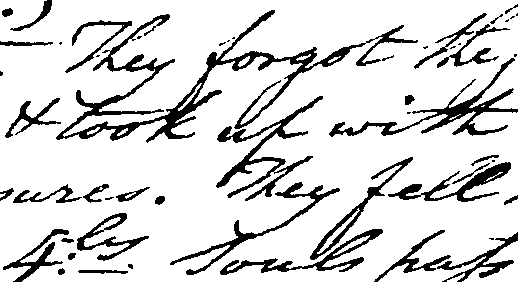 They forgot the
& took up with
sures. They fell
4:ly Souls pass